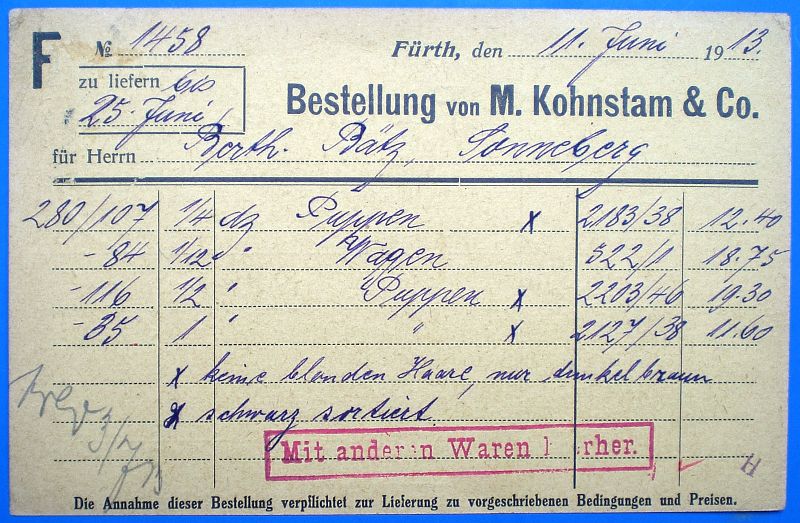 F № 1458 Fürth, den 11. Juni 1913.
zu liefern bis
25. Juni
Bestellung von M. Kohnstam & Co.
für Herrn Berth. Bätz, Sonneberg
280/107 1/4 dz Puppen x 2183/38 12.40
-84 1/12 " Wagen 322/1 18.75
-116 1/2 " Puppen x 2203/46 19.30
-35 1 " " x 2127/38 11.60
x keine blonden Haare, nur dunkelbraun
x schwarz sortiert.
Mit anderen Waren hierher.
Die Annahme dieser Bestellung verpflichtet zur Lieferung zu vorgeschriebenen Bedingungen und Preisen.